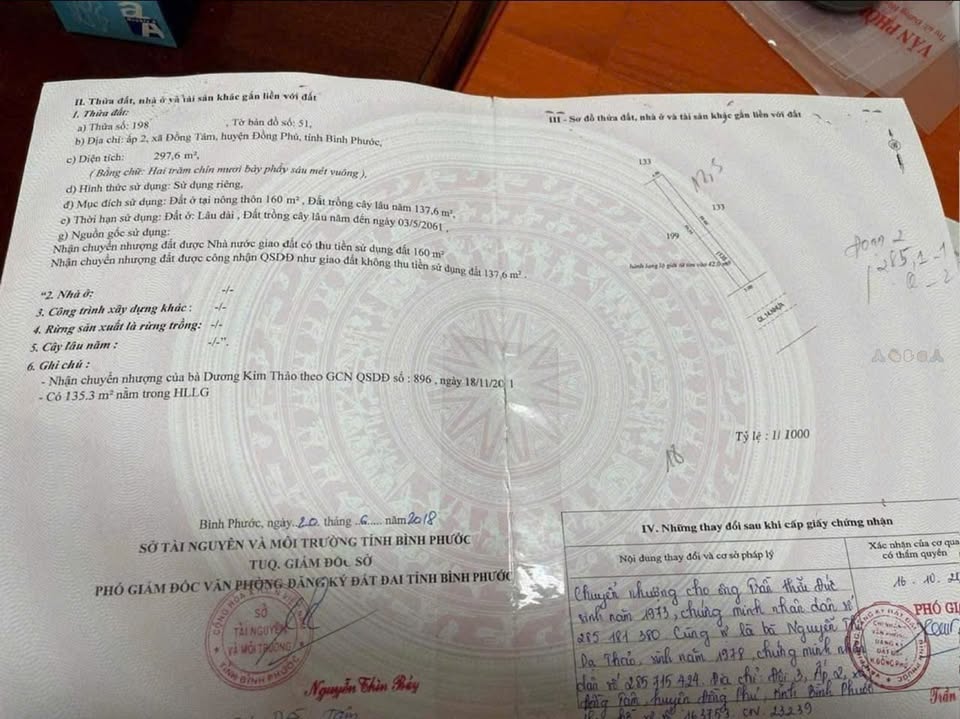 VĂN PHÒ
II. Thửa đất, nhà ở và tài sản khác gắn liền với đất
1. Thửa đất:
a) Thửa số: 198 , Tờ bản đồ số: 51,
b) Địa chỉ: ấp 2, xã Đồng Tâm, huyện Đồng Phú, tỉnh Bình Phước,
c) Diện tích: 297,6 m²,
( Bằng chữ: Hai trăm chín mươi bảy phẩy sáu mét vuông ),
d) Hình thức sử dụng: Sử dụng riêng,
đ) Mục đích sử dụng: Đất ở tại nông thôn 160 m² , Đất trồng cây lâu năm 137,6 m²,
e) Thời hạn sử dụng: Đất ở: Lâu dài , Đất trồng cây lâu năm đến ngày 03/5/2061 ,
g) Nguồn gốc sử dụng:
Nhận chuyển nhượng đất được Nhà nước giao đất có thu tiền sử dụng đất 160 m²
Nhận chuyển nhượng đất được công nhận QSDĐ như giao đất không thu tiền sử dụng đất 137,6 m² .
"2. Nhà ở: -/-
3. Công trình xây dựng khác : -/-
4. Rừng sản xuất là rừng trồng: -/-
5. Cây lâu năm : -/-".
6. Ghi chú :
- Nhận chuyển nhượng của bà Dương Kim Thảo theo GCN QSDĐ số : 896 , ngày 18/11/20 1
- Có 135.3 m² nằm trong HLLG
Bình Phước, ngày 20 tháng 6 năm 2018
SỞ TÀI NGUYÊN VÀ MÔI TRƯỜNG TỈNH BÌNH PHƯỚC
TUQ. GIÁM ĐỐC SỞ
PHÓ GIÁM ĐỐC VĂN PHÒNG ĐĂNG KÝ ĐẤT ĐAI TỈNH BÌNH PHƯỚC
SỞ
TÀI NGUYÊN
VÀ MÔI TRƯỜNG
TỈNH BÌNH PHƯỚC
Nguyễn Thìn Bảy
III - Sơ đồ thửa đất, nhà ở và tài sản khác gắn liền với đất
133
133
199
hành lang lộ giới từ tim vào 42.0 m
QL 14 NHỰA
Tỷ lệ : 1/ 1000
IV. Những thay đổi sau khi cấp giấy chứng nhận
Nội dung thay đổi và cơ sở pháp lý
Xác nhận của cơ qua
có thẩm quyền
Chuyển nhượng cho ông Trần Thái Đức
sinh năm 1973, chứng minh nhân dân số
285 181 380 Cùng vợ là bà Nguyễn Thị
Dạ Thảo, sinh năm 1978, chứng minh nhân
dân số 285 715 424. Địa chỉ: Đội 3, Ấp 2, xã
Đồng Tâm, huyện Đồng Phú, tỉnh Bình Phước
163753. CN. 23239
16 . 10 . 20
PHÓ GI
Trần